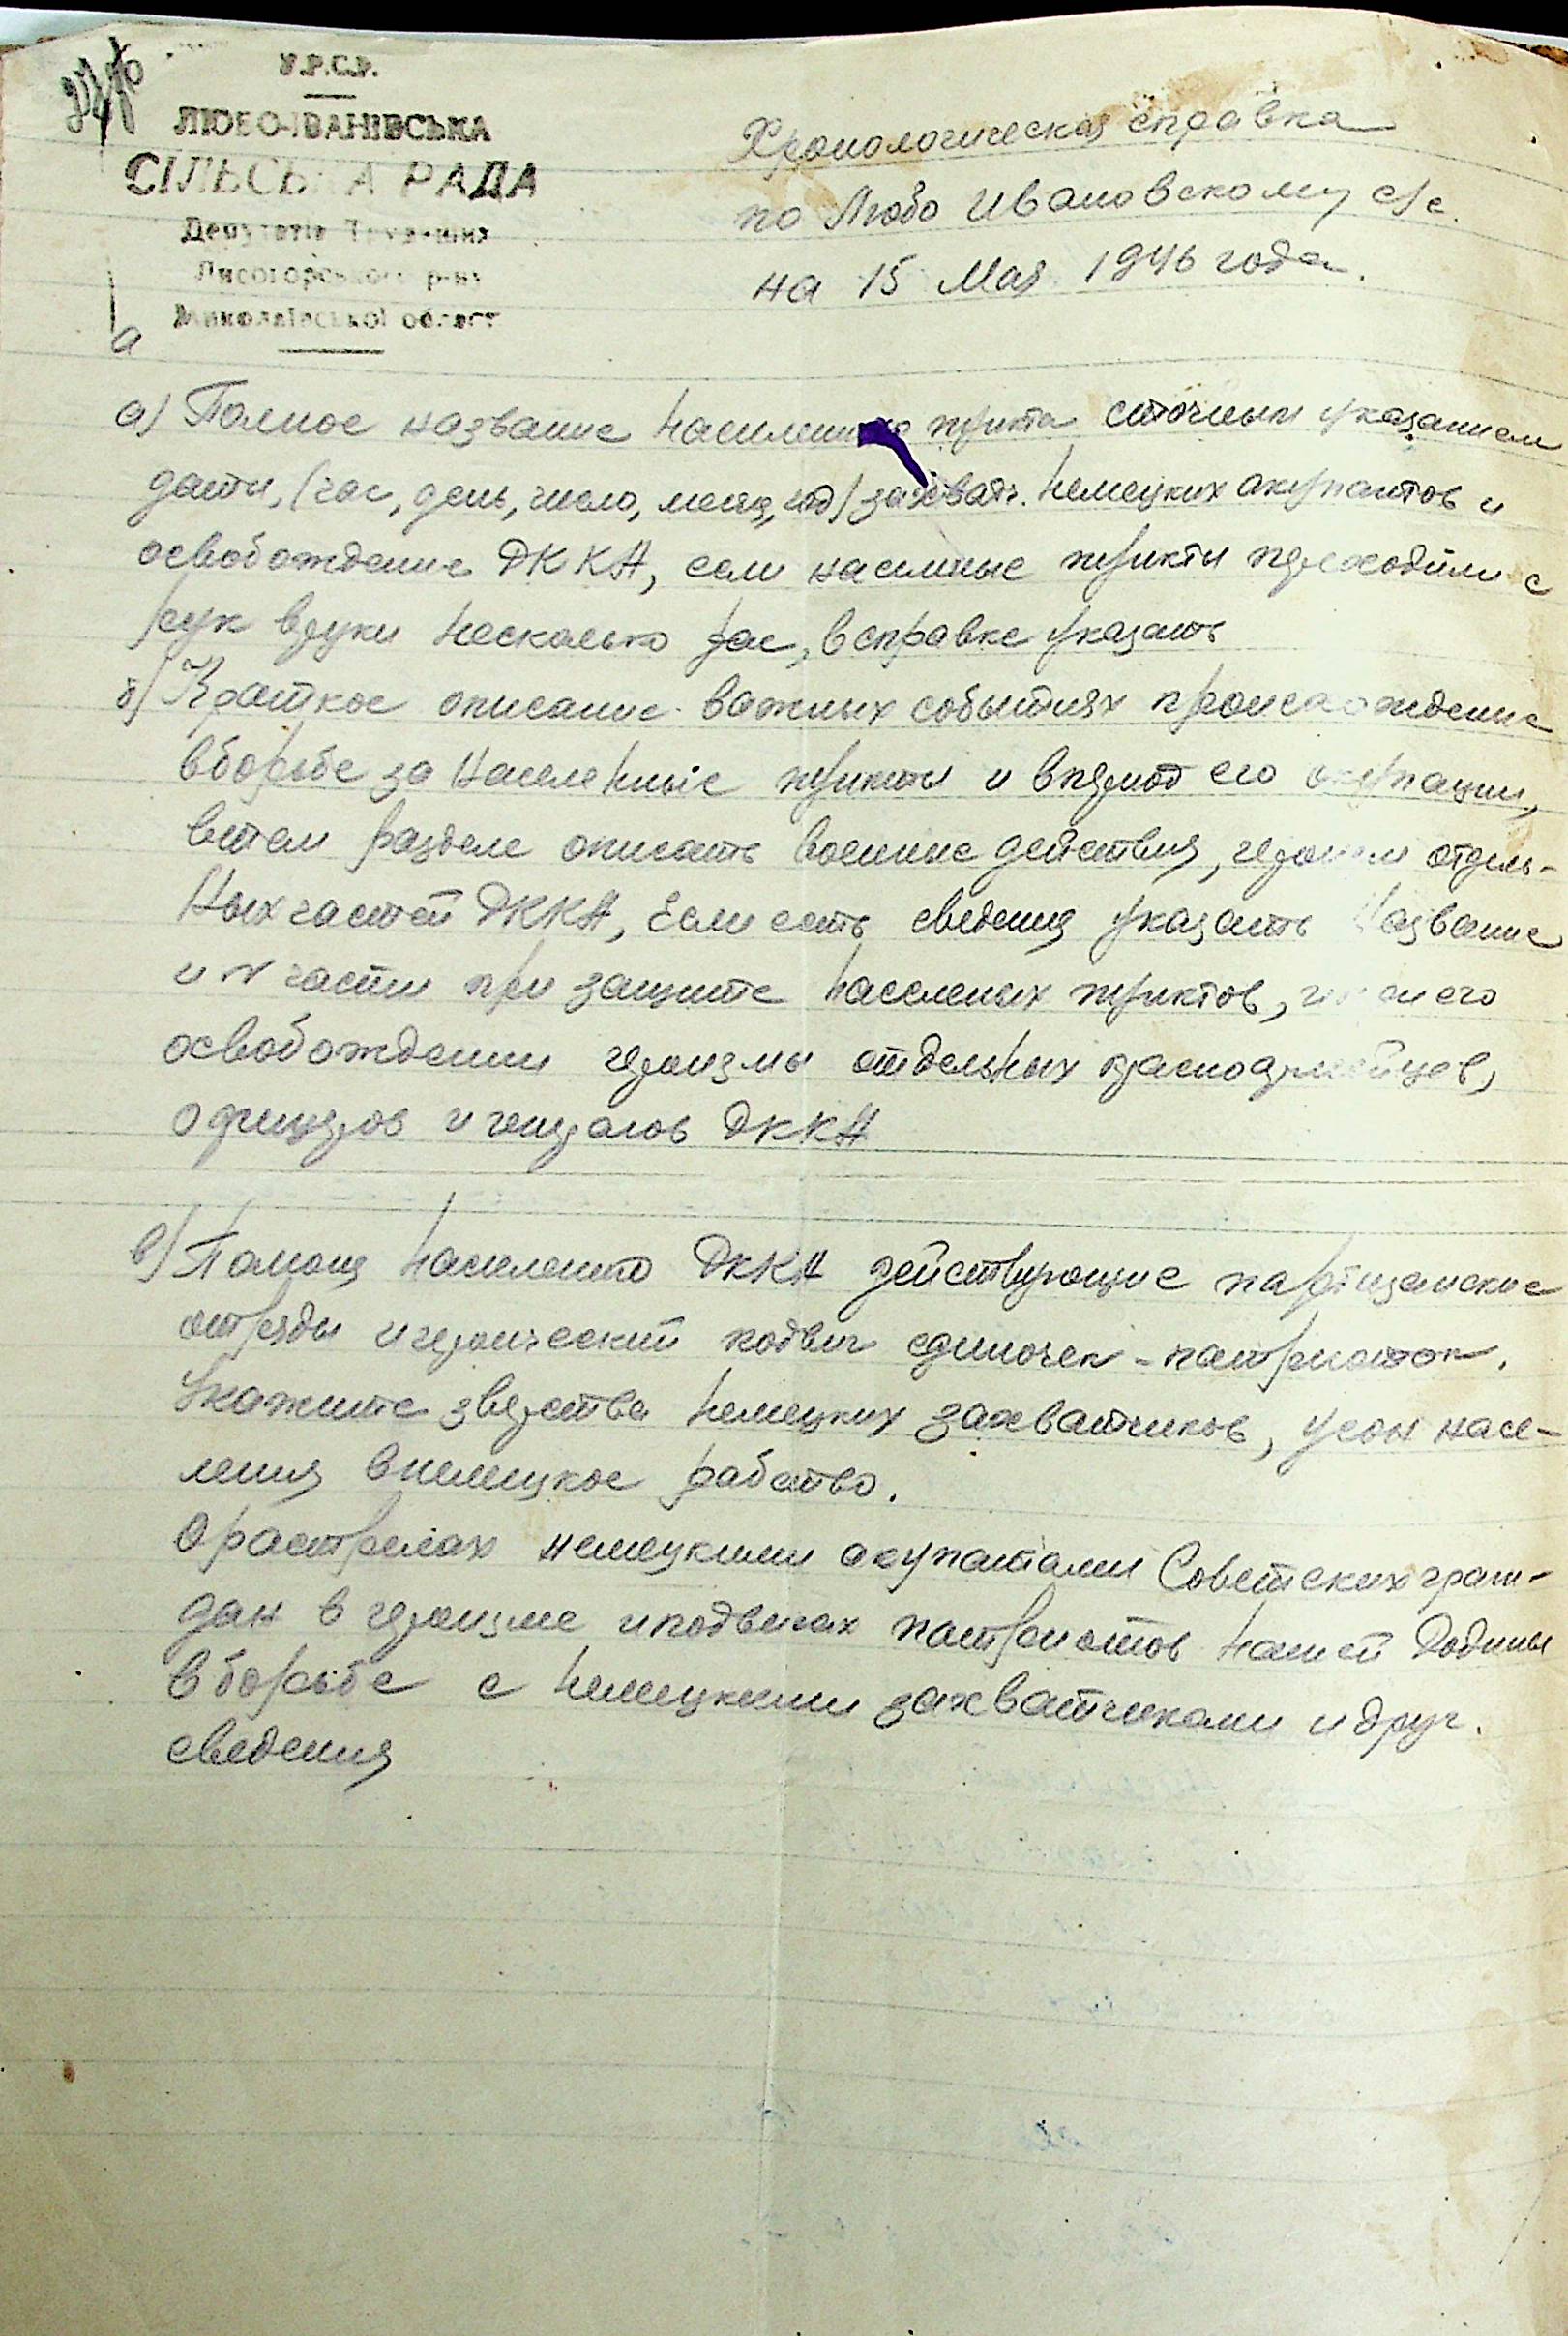 У.Р.С.Р.
ЛЮБО-ІВАНІВСЬКА
СІЛЬСЬКА РАДА
Депутатів Трудящих
Лисогорського р-ну
Миколаївської област
Хронологическая справка
по Любо Ивановскому с/с.
на 15 Мая 1946 года.
а
а) Полное название населенного пункта сточным указанием
даты, (час, день, число, месяц, год) захвата. немецких окупантов и
освобождение РККА, если населные пункты переходили с
рук вруки несколько рас, в справке указать
б) Краткое описание важных событиях происхождение
вборьбе за населеные пункты и впериод его окупации,
ветом разделе описать военные действия, отдель-
ных частей РККА, Если есть сведения указать Название
и № части при защите населеных пунктов, его
освобождении героизмы отдельных красноармейцев,
офицеров и генералов РККА
в) Помощ населению РККА действующие партизанские
отряды игероический подвиг единочек - патриоток.
Укажите зверства немецких захватчиков, угон насе-
ления внемецкое рабство.
О растрелах немецкими окупантами Советских граж-
дан в героизме иподвигах патриотов нашей Родины
вборьбе с немецкими захватчиками идруг.
сведения